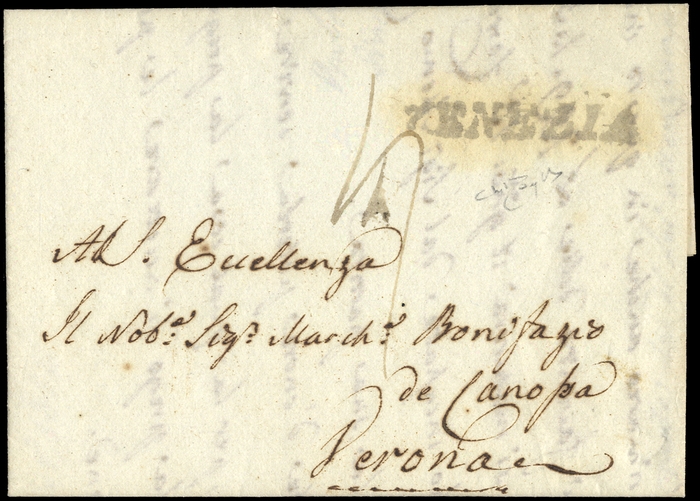 VENEZIA
A
A S. Eccellenza
Il Nob.e Sig.r March.e Bonifazio
de Canossa
Verona